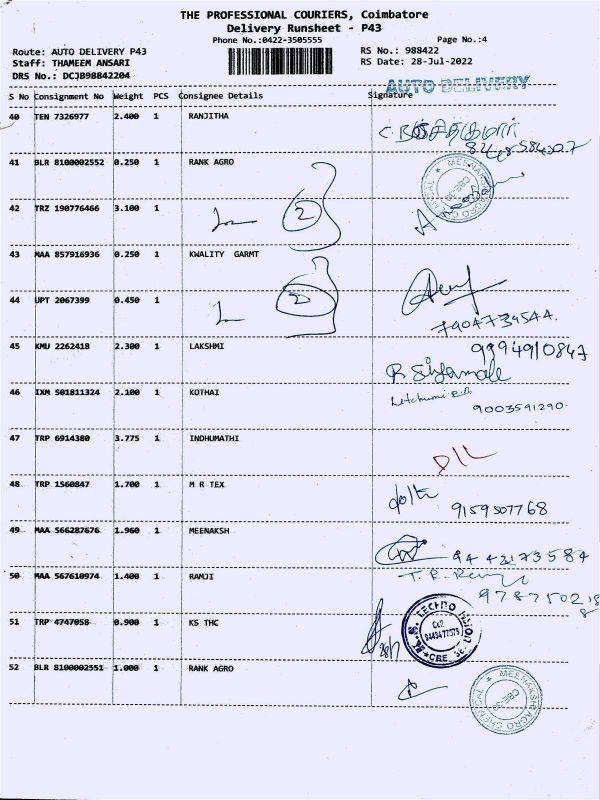 THE PROFESSIONAL COURIERS, Coimbatore
Delivery Runsheet - P43
Phone No.:0422-3505555 Page No.:4
Route: AUTO DELIVERY P43 RS No.: 988422
Staff: THAMEEM ANSARI RS Date: 28-Jul-2022
DRS No.: DCJB98842204
AUTO DELIVERY
S No Consignment No Weight PCS Consignee Details Signature
40 TEN 7326977 2.400 1 RANJITHA
41 BLR 8100002552 0.250 1 RANK AGRO
MEENAKSHI AGRO CHEMICAL
CBE-30
42 TRZ 190776466 3.100 1 2
43 MAA 857916936 0.250 1 KWALITY GARMT
44 UPT 2067399 0.450 1 2
7904739544.
45 KMU 2262418 2.300 1 LAKSHMI 9994910847
R. Siyamala
46 IXM 501811324 2.100 1 KOTHAI
9003591290.
47 TRP 6914380 3.775 1 INDHUMATHI
48 TRP 1560847 1.700 1 M R TEX
9159507768
49 MAA 566287676 1.960 1 MEENAKSH
9442173584
50 MAA 567610974 1.400 1 RAMJI T. R.
51 TRP 4747058 0.900 1 KS THC
52 BLR 8100002551 1.000 1 RANK AGRO
MEENAKSHI AGRO CHEMICAL
CBE-30